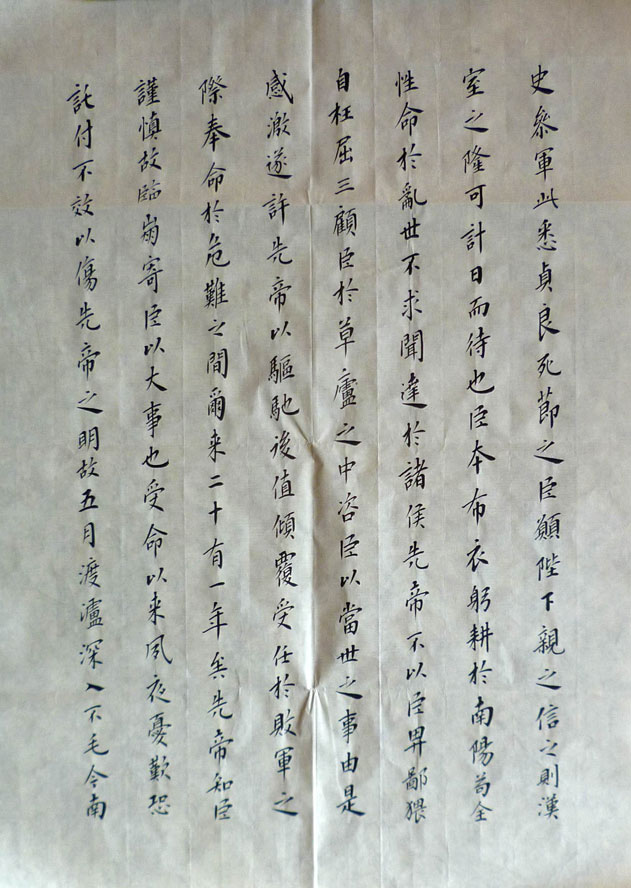 史參軍此悉貞良死節之臣願陛下親之信之則漢
室之隆可計日而待也臣本布衣躬耕於南陽苟全
性命於亂世不求聞達於諸侯先帝不以臣卑鄙猥
自枉屈三顧臣於草廬之中咨臣以當世之事由是
感激遂許先帝以驅馳後值傾覆受任於敗軍之
際奉命於危難之間爾来二十有一年矣先帝知臣
謹慎故臨崩寄臣以大事也受命以来夙夜憂歎恐
託付不效以傷先帝之明故五月渡瀘深入不毛今南